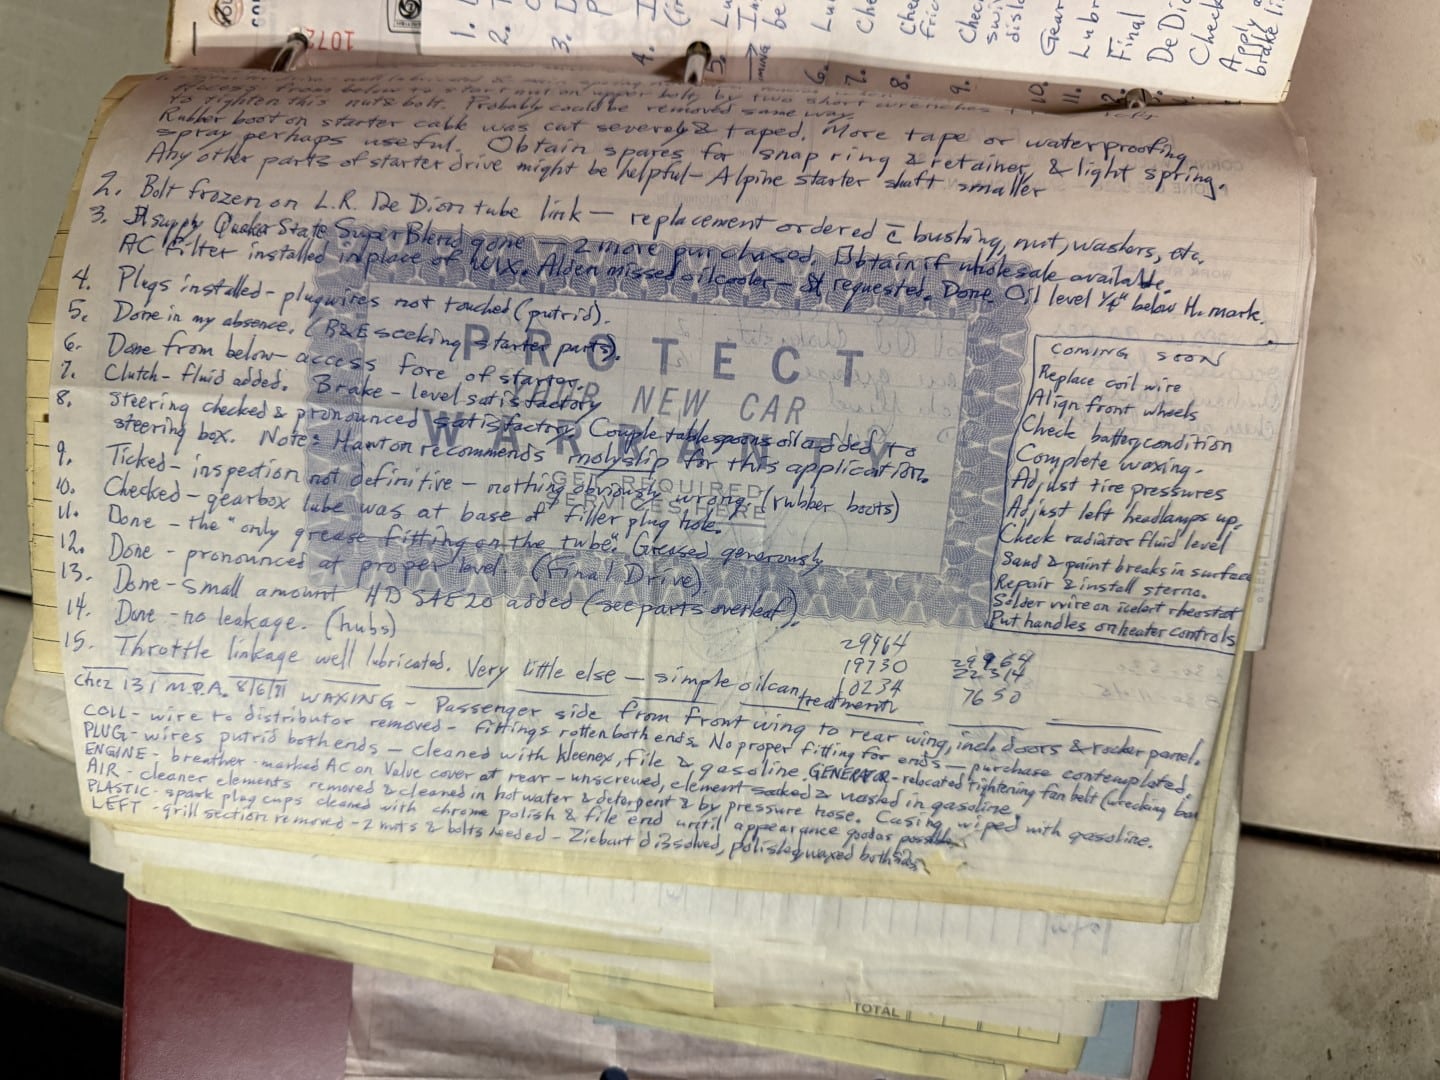 1072
TOTAL
1.
2.
3.
4.
5. Lu
MING
6. Lu
7. Che
8. Che
fric
9. Chec
swi
disl
10. Gear
11. Lubr
Final
De Dio
Check
Apply a
brake li
Access from below to start nut on upper bolt, by two short wrenches
to tighten this nut & bolt. Probably could be removed same way.
Rubber boot on starter cable was cut severely & taped. More tape or waterproofing
spray perhaps useful. Obtain spares for snap ring & retainer & light spring.
Any other parts of starter drive might be helpful - Alpine starter shaft smaller
2. Bolt frozen on L.R. De Dion tube link - replacement ordered c̄ bushing, nut, washers, etc.
3. supply Quaker State Super Blend gone - 2 more purchased. Obtain if wholesale available.
AC Filter installed in place of WIX. Alden missed oil cooler - requested. Done. Oil level 1/4" below H. mark.
4. Plugs installed - plug wires not touched (putrid).
5. Done in my absence. (B&E seeking starter parts).
6. Done from below - access fore of starter.
7. Clutch - fluid added. Brake - level satisfactory
8. Steering checked & pronounced satisfactory. Couple tablespoons oil added to
steering box. Note: Hawton recommends molyslip for this application.
9. Ticked - inspection not definitive - nothing obviously wrong (rubber boots)
10. Checked - gearbox lube was at base of filler plug hole.
11. Done - the "only grease fitting on the tube". Greased generously
12. Done - pronounced at proper level. (Final Drive)
13. Done - small amount HD SAE 20 added (see parts overleaf).
14. Done - no leakage. (hubs)
15. Throttle linkage well lubricated. Very little else - simple oilcan treatment
PROTECT
YOUR NEW CAR
WARRANTY
GET REQUIRED
SERVICES HERE
COMING SOON
Replace coil wire
Align front wheels
Check battery condition
Complete waxing.
Adjust tire pressures
Adjust left headlamps up.
Check radiator fluid level
Sand & paint breaks in surface
Repair & install stereo.
Solder wire on rheostat
Put handles on heater controls
29964
19730
10234
29964
22314
7650
Chez 131 M.P.A. 8/6/71 WAXING - Passenger side from front wing to rear wing, incl. doors & rocker panel.
COIL - wire to distributor removed - fittings rotten both ends. No proper fitting for ends - purchase contemplated.
PLUG - wires putrid both ends - cleaned with kleenex, file & gasoline. GENERATOR - relocated tightening fan belt (wrecking bar
ENGINE - breather - marked AC on valve cover at rear - unscrewed, element soaked & washed in gasoline.
AIR - cleaner elements removed & cleaned in hot water & detergent & by pressure hose. Casing wiped with gasoline.
PLASTIC - spark plug cups cleaned with chrome polish & file end until appearance good as possible
LEFT - grill section removed - 2 nuts & bolts needed - Ziebart dissolved, polished, waxed both sides